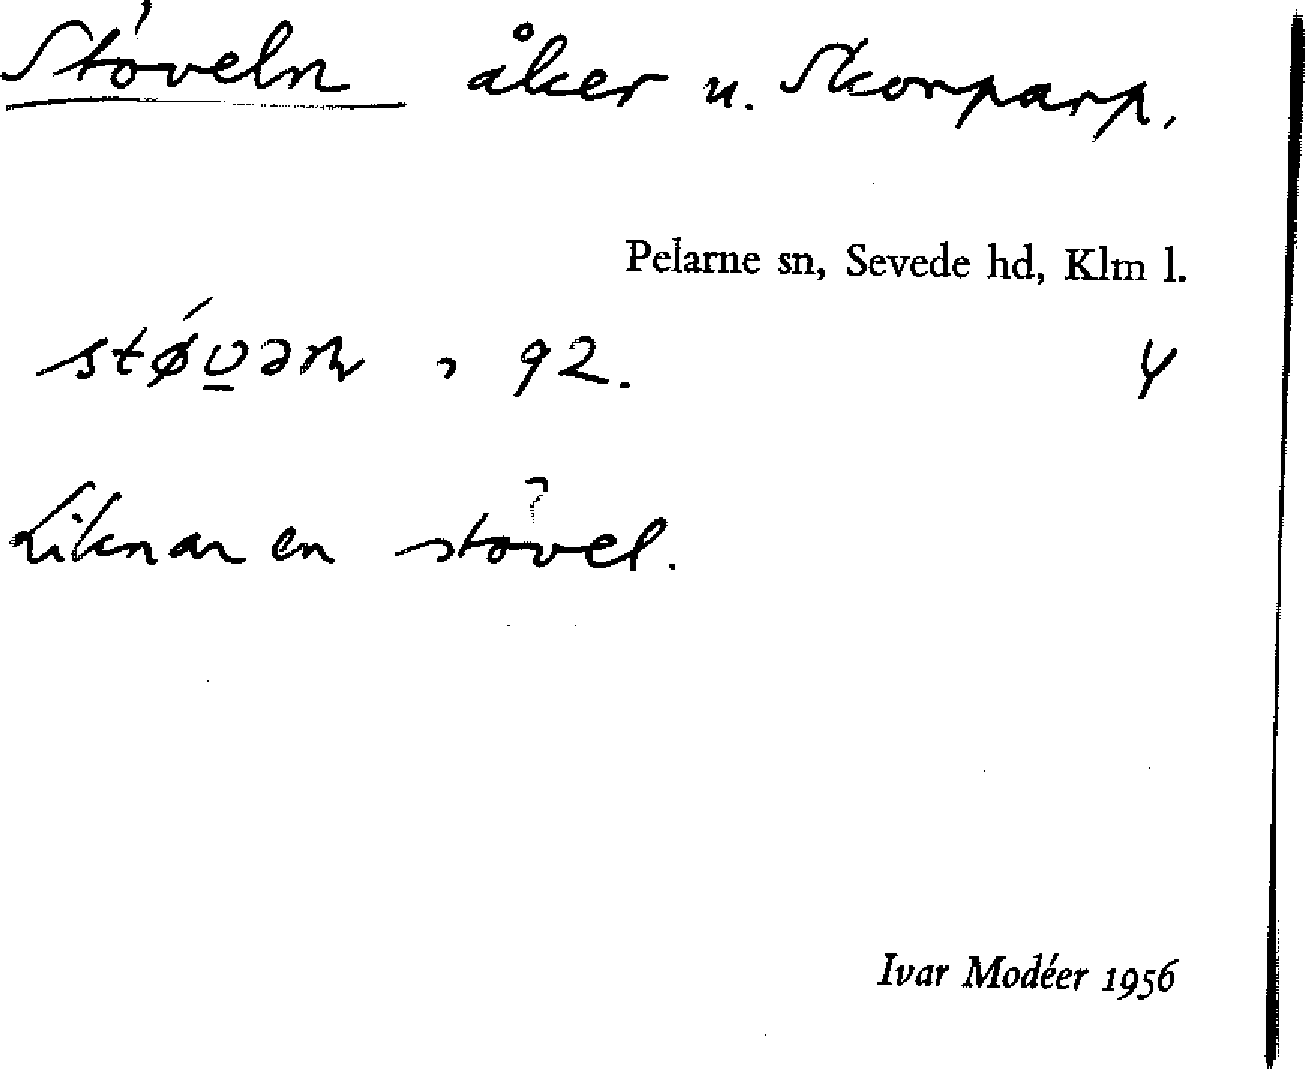 Stöveln åker u. Skorparp.
Pelarne sn, Sevede hd, Klm l.
92. 4
Liknar en stövel.
Ivar Modéer 1956